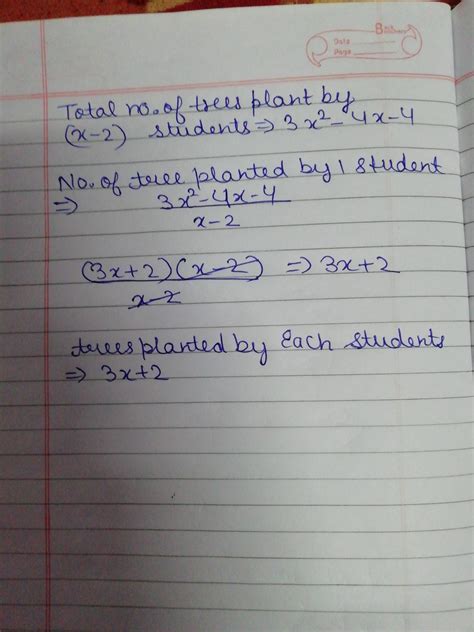 Date
Page
Total no. of trees plant by
(x-2) students ⇒ 3x²-4x-4
No. of tree planted by 1 student
⇒ 3x²-4x-4
x-2
(3x+2)(x-2) ⇒ 3x+2
x-2
trees planted by Each students
⇒ 3x+2